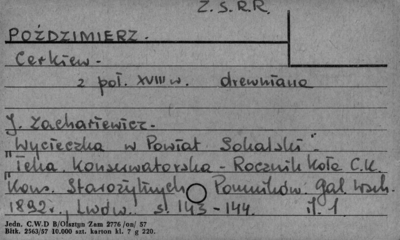 Z.S.R.R.
POŹDZIMIERZ.
Cerkiew.
2 poł. XVIII w. drewniana
J. Zachariewicz.
"Wycieczka w Powiat Sokalski".
"Teka Konserwatorska - Rocznik Koła C.K.
Kons. Starożytnych Pomników. Gal. Wsch.
1892r., Lwów. s. 143-144. il. 1
Jedn. C.W.D B/Olsztyn Zam 2776/on/ 57
Bltk. 2563/57 10.000 szt. karton kl. 7 g 220.